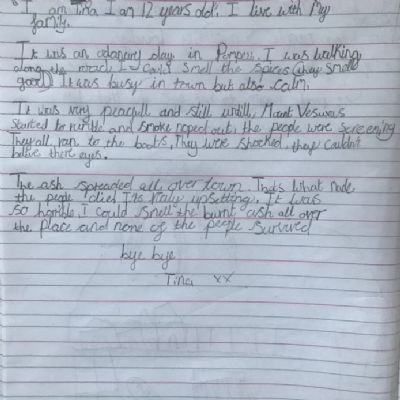 I am Tina I am 12 years old. I live with my
family.
It was an advanced day in Pompeii. I was walking
along the I could smell the spices they smell
good It was busy in town but also calm.
It was very peacfull and still untill, Mount Vesuvius
Started to rumble and smoke roped out. the people were screening
They all ran to the boats, They were shocked, they couldn't
believe there eyes.
The ash spreaded all over town. Thats What made
the people died Its realy upsetting. It was
so horrible, I could smell the burnt ash all over
the place and none of the people survived
bye bye
Tina xx